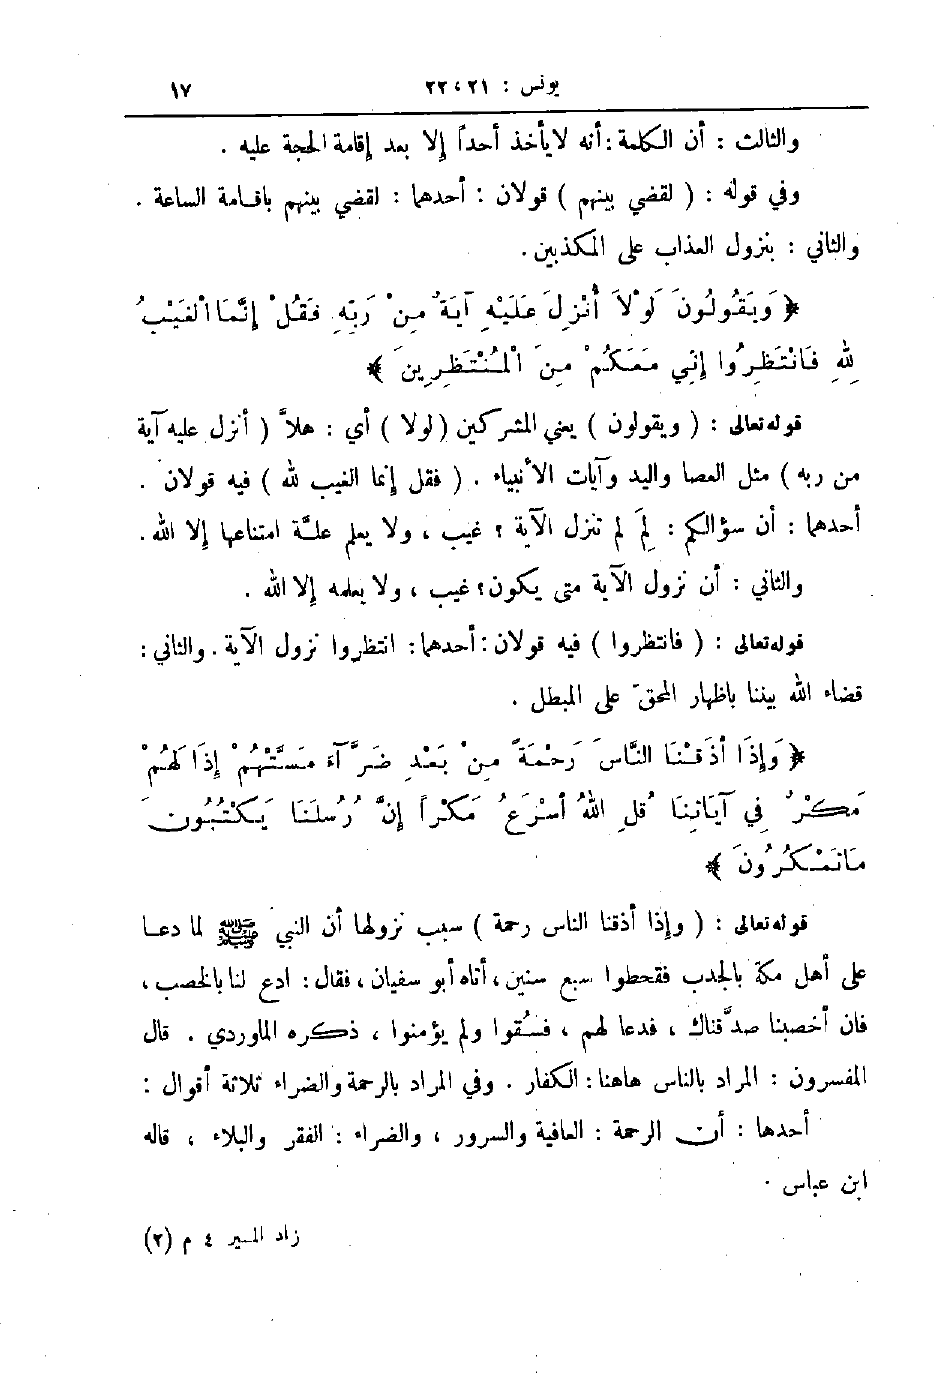 يونس : ٢١ ، ٢٢ ١٧
والثالث : أن الكلمة : أنه لا يأخذ أحداً إلا بعد إقامة الحجة عليه .
وفي قوله : ( لقضي بينهم ) قولان : أحدهما : لقضي بينهم باقامة الساعة .
والثاني : بنزول العذاب على المكذبين .
﴿ وَيَقُولُونَ لَوْلاَ أُنْزِلَ عَلَيْهِ آيَةٌ مِنْ رَبِّهِ فَقُلْ إِنَّمَا الْغَيْبُ
لِلّٰهِ فَانْتَظِرُوا إِنِّي مَعَكُمْ مِنَ الْمُنْتَظِرِينَ ﴾
قوله تعالى : ( ويقولون ) يعني المشركين ( لولا ) أي : هلاَّ ( أنزل عليه آية
من ربه ) مثل العصا واليد وآيات الأنبياء . ( فقل إنما الغيب لله ) فيه قولان .
أحدهما : أن سؤالكم : لِمَ لم تنزل الآية ؟ غيب ، ولا يعلم علَّة امتناعها إلا الله .
والثاني : أن نزول الآية متى يكون ؟ غيب ، ولا يعلمه إلا الله .
قوله تعالى : ( فانتظروا ) فيه قولان : أحدهما : انتظروا نزول الآية . والثاني :
قضاء الله بيننا باظهار المحقّ على المبطل .
﴿ وَإِذَا أَذَقْنَا النَّاسَ رَحْمَةً مِنْ بَعْدِ ضَرَّآءَ مَسَّتْهُمْ إِذَا لَهُمْ
مَكْرٌ فِي آيَاتِنَا قُلِ اللهُ أَسْرَعُ مَكْراً إِنَّ رُسُلَنَا يَكْتُبُونَ
مَا تَمْكُرُونَ ﴾
قوله تعالى : ( وإذا أذقنا الناس رحمة ) سبب نزولها أن النبي ﷺ لما دعا
على أهل مكة بالجدب فقحطوا سبع سنين ، أتاه أبو سفيان ، فقال : ادع لنا بالخصب ،
فان أخصبنا صدَّقناك ، فدعا لهم ، فسُقوا ولم يؤمنوا ، ذكره الماوردي . قال
المفسرون : المراد بالناس هاهنا : الكفار . وفي المراد بالرحمة والضراء ثلاثة أقوال :
أحدها : أن الرحمة : العافية والسرور ، والضراء : الفقر والبلاء ، قاله
ابن عباس .
زاد المسير ٤ م (٢)